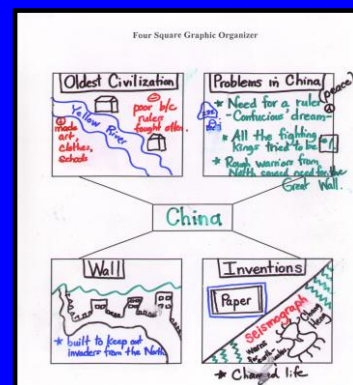 Four Square Graphic Organizer
Oldest Civilization
Yellow River
poor b/c
rulers
fought often
made
art,
clothes,
schools
Problems in China
(peace)
* Need for a ruler
-Confucious' dream-
* All the fighting
kings tried to be #1
* Rough warriors from
North caused need for the
Great Wall.
China
Wall
* built to keep out
invaders from the North
Inventions
Paper
Seismograph
* Changed life